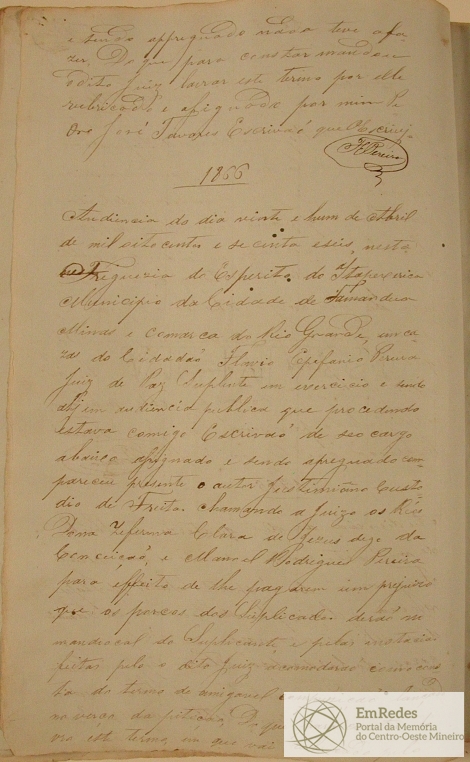 e sendo apregoado não teve a fa-
zer, Do que para constar mandou
o dito Juiz lavrar este termo por elle
rubricado e asignado por mim Pe
dro José Tavares Escrivaõ que escrivi
F Pereira
1866
Audiencia do dia vinte e hum de Abril
de mil oito centos e secenta e seis, nesta
Freguezia do Esperito do Itapecerica
Municipio da Cidade de Tamandua
Minas e Comarca do Rio Grande, em ca
za do Cidadaõ Flavio Epefanio Pereira
Juiz de Paz Suplente em exercicio e sendo
ahi em audiencia publica que procedendo
estava comigo Escrivaõ de seo cargo
abaixo asignado e sendo apregoado com
pareceu presente o autor Justimiano Custo
dio de Freita. chamando a Juizo os Reos
Dona Zeferina Clara de Jezus digo da
Conceicaõ, e Manoel Rodrigues Pereira
para efeito de lhe pagarem um prejuizo
que os porcos dos Suplicados deraõ no
mandiocal do Suplicante e pelas
feitas pelo o dito Juiz
do termo de amigavel
no verço da petiçaõ, Do que
este termo em que vai
EmRedes
Portal da Memória
do Centro-Oeste Mineiro